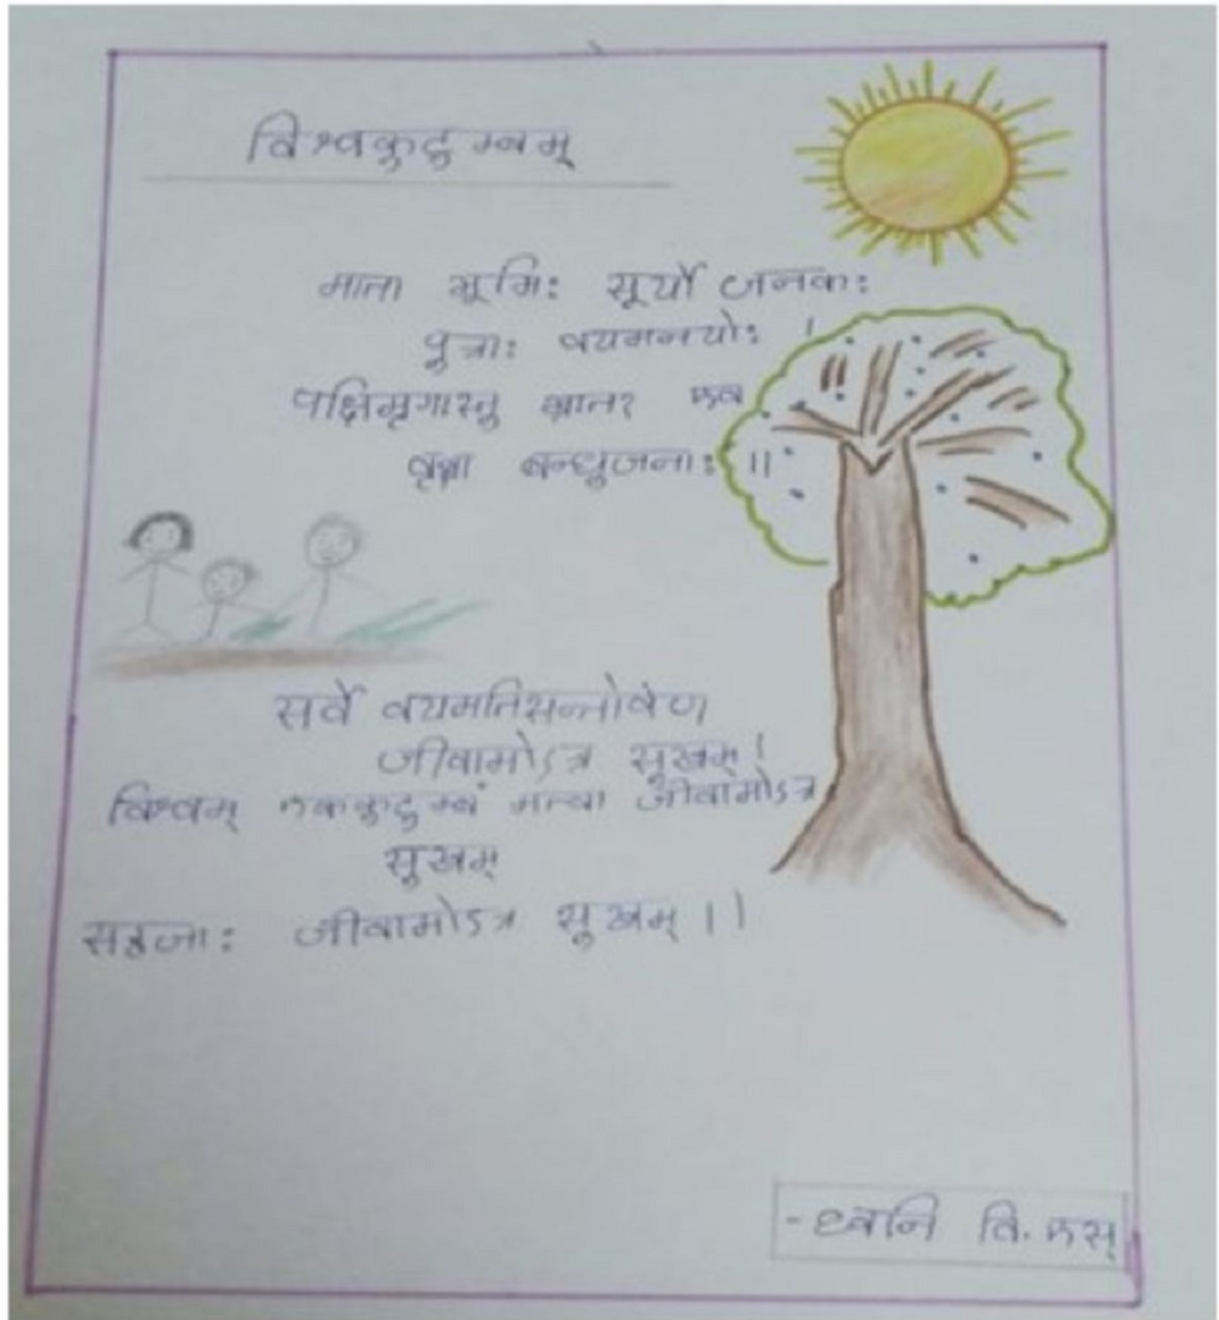 विश्वकुटुम्बम्
माता भूमिः सूर्यो जनकः
पुत्राः वयमनयोः ।
पक्षिमृगास्तु भ्रातर एव
वृक्षा बन्धुजनाः ॥
सर्वे वयमतिसन्तोषेण
जीवामोऽत्र सुखम् ।
विश्वम् एककुटुम्बं मत्वा जीवामोऽत्र
सुखम्
सहजाः जीवामोऽत्र सुखम् ।।
- ध्वनि वि. एस्